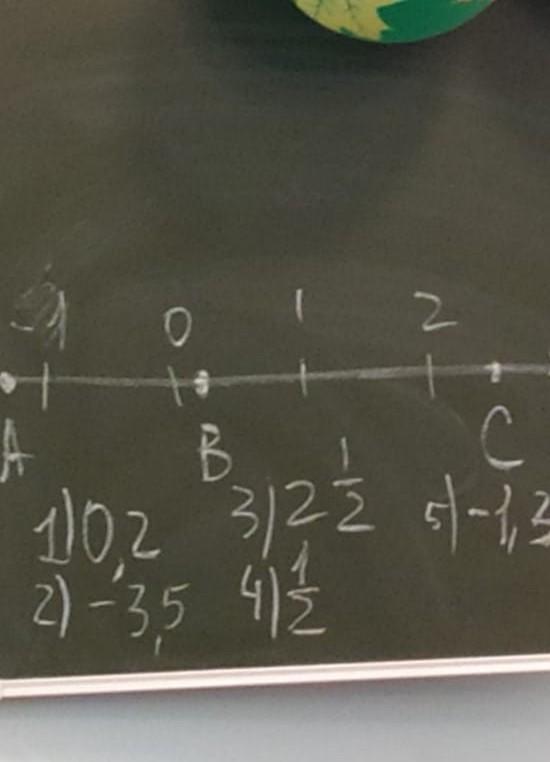 -1 0 1 2
A B C
1) 0,2 3) 2 1/2 5) -1,3
2) -3,5 4) 1/2